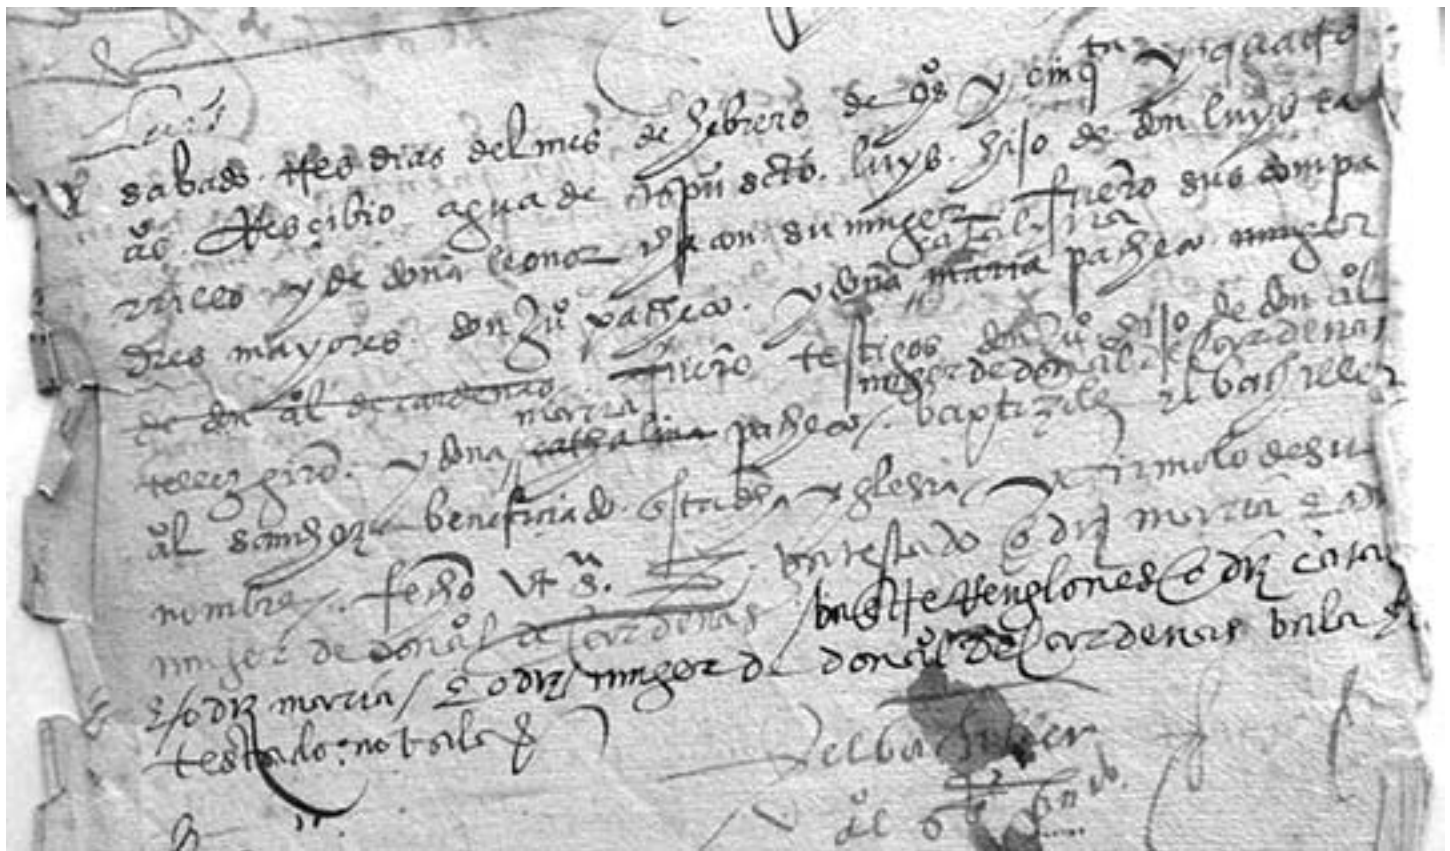 Luis
sabado. tres dias del mes de hebrero de y cinqta y quatro
as. Rescibio agua de spu scto. luys. hijo de don luys ca
rrillo y de doña leonor su muger fuero sus compa
dres mayores. don Ju pacheco. y doña maria catalina pacheco muger
de don al de cardenas. fuero testigos don Ju hijo de don al
tellez giro. y dona cathalina maria pacheco muger de don al de Cardenas. baptizole el bachiller
al sanchez beneficiado desta dha yglesia y firmolo de su
nombre. fecho ut s. va testado o diz maria e o diz
muger de don al de Cardenas / entre Renglones o diz cata
e / o diz maria / e o diz muger de don al de Cardenas vala
testado no vala
el bachiller
al